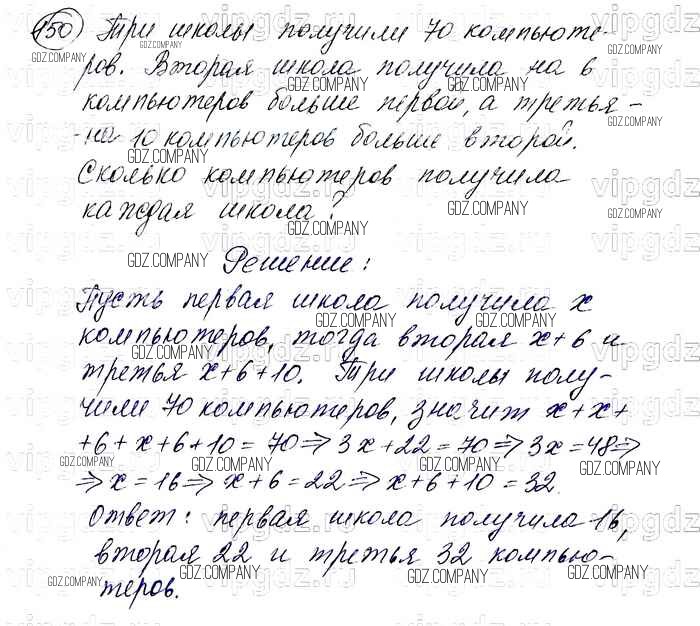 150 Три школы получили 70 компьюте-
ров. Вторая школа получила на 6
компьютеров больше первой, а третья -
- на 10 компьютеров больше второй.
Сколько компьютеров получила
каждая школа?
Решение:
Пусть первая школа получила x
компьютеров, тогда вторая x+6 и
третья x+6+10. Три школы полу-
чили 70 компьютеров, значит x+x+
+6+x+6+10=70⇒3x+22=70⇒3x=48⇒
⇒x=16⇒x+6=22⇒x+6+10=32.
Ответ: первая школа получила 16,
вторая 22 и третья 32 компью-
теров.
GDZ.COMPANY
vipgdz.ru